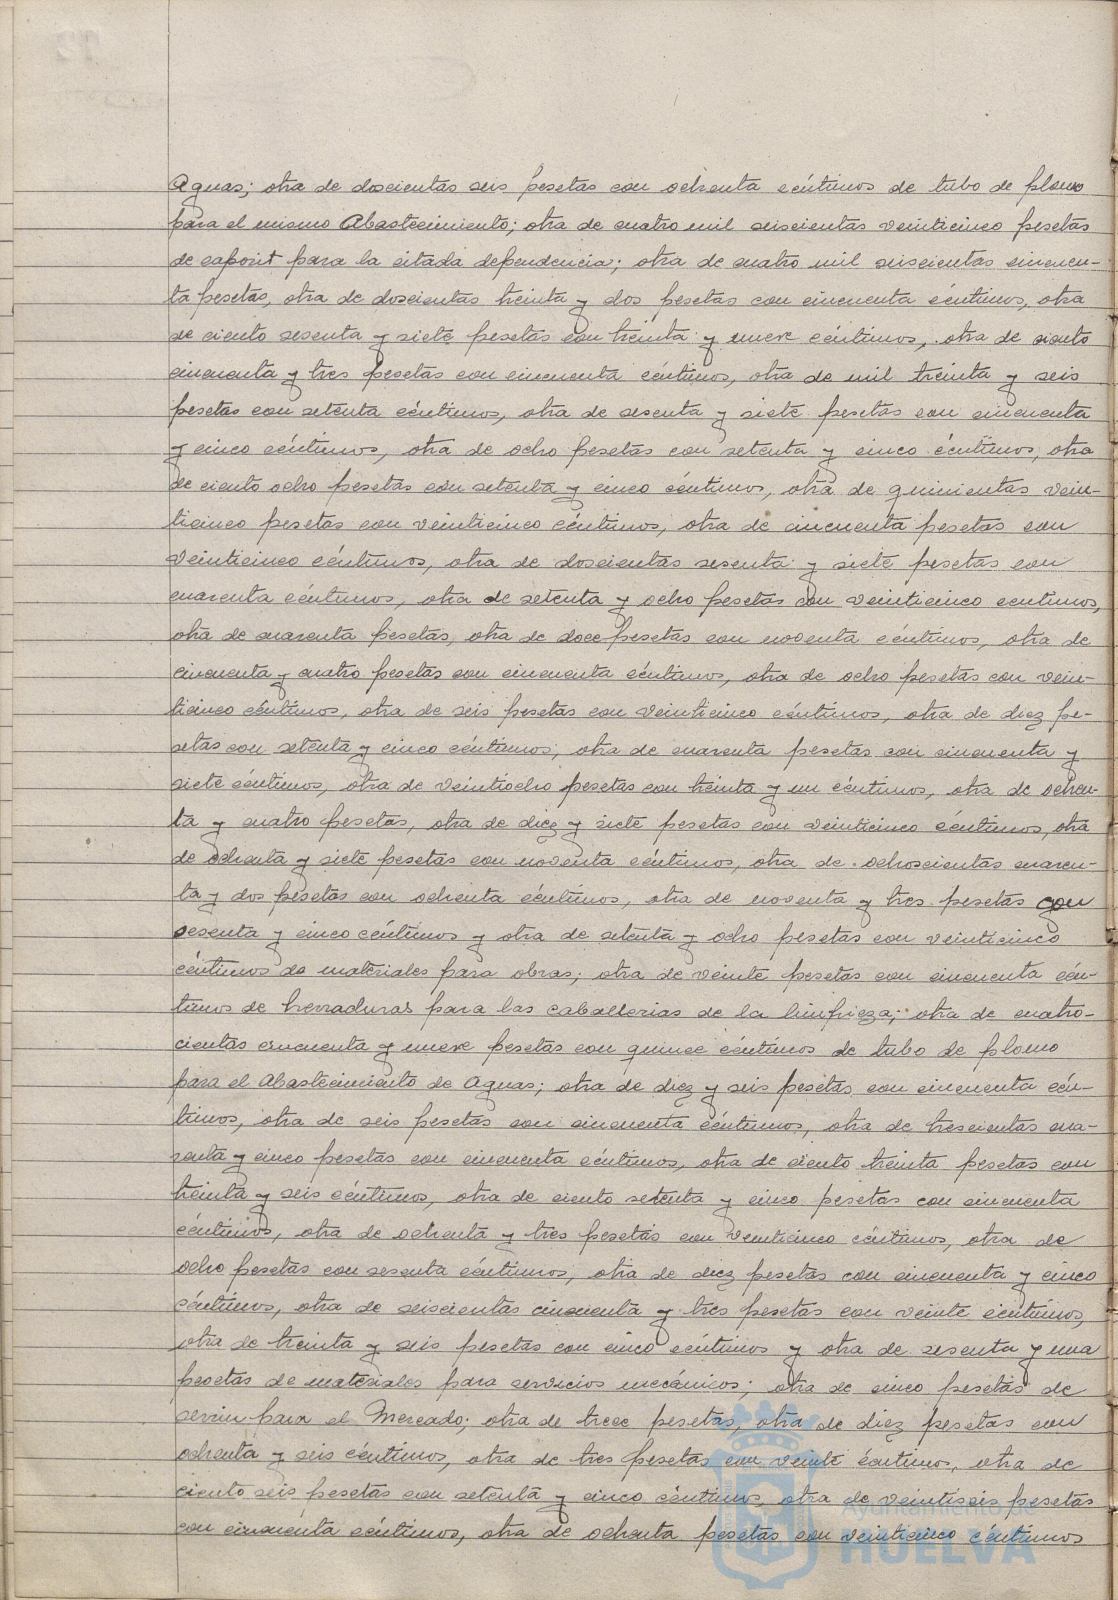 Aguas; otra de doscientas seis pesetas con ochenta céntimos de tubo de plomo
para el mismo Abastecimiento; otra de cuatro mil seiscientas veinticinco pesetas
de caporit para la citada dependencia; otra de cuatro mil seiscientas cincuen-
ta pesetas, otra de doscientas treinta y dos pesetas con cincuenta céntimos, otra
de ciento sesenta y siete pesetas con treinta y nueve céntimos, otra de ciento
cincuenta y tres pesetas con cincuenta céntimos, otra de mil treinta y seis
pesetas con setenta céntimos, otra de sesenta y siete pesetas con cincuenta
y cinco céntimos, otra de ocho pesetas con setenta y cinco céntimos, otra
de ciento ocho pesetas con setenta y cinco céntimos, otra de quinientas vein-
ticinco pesetas con veinticinco céntimos, otra de cincuenta pesetas con
veinticinco céntimos, otra de doscientas sesenta y siete pesetas con
cuarenta céntimos, otra de setenta y ocho pesetas con veinticinco centimos,
otra de cuarenta pesetas, otra de doce pesetas con noventa céntimos, otra de
cincuenta y cuatro pesetas con cincuenta céntimos, otra de ocho pesetas con vein-
ticinco céntimos, otra de seis pesetas con veinticinco céntimos, otra de diez pe-
setas con setenta y cinco céntimos, otra de cuarenta pesetas con cincuenta y
siete céntimos, otra de veintiocho pesetas con treinta y un céntimos, otra de ochen-
ta y cuatro pesetas, otra de diez y siete pesetas con veinticinco céntimos, otra
de ochenta y siete pesetas con noventa céntimos, otra de ochoscientas cuaren-
ta y dos pesetas con ochenta céntimos, otra de noventa y tres pesetas con
sesenta y cinco céntimos y otra de setenta y ocho pesetas con veinticinco
céntimos de materiales para obras; otra de veinte pesetas con cincuenta cén-
timos de herraduras para las caballerias de la limpieza; otra de cuatro-
cientas cincuenta y nueve pesetas con quince céntimos de tubo de plomo
para el Abastecimiento de Aguas; otra de diez y seis pesetas con cincuenta cén-
timos, otra de seis pesetas con cincuenta céntimos, otra de trescientas cua-
renta y cinco pesetas con cincuenta céntimos, otra de ciento treinta pesetas con
treinta y seis céntimos, otra de ciento setenta y cinco pesetas con cincuenta
céntimos, otra de ochenta y tres pesetas con veinticinco céntimos, otra de
ocho pesetas con sesenta céntimos, otra de diez pesetas con cincuenta y cinco
céntimos, otra de seiscientas cincuenta y tres pesetas con veinte céntimos,
otra de treinta y seis pesetas con cinco céntimos y otra de sesenta y una
pesetas de materiales para servicios mecánicos; otra de cinco pesetas de
serrin para el Mercado; otra de trece pesetas, otra de diez pesetas con
ochenta y seis céntimos, otra de tres pesetas con veinte céntimos, otra de
ciento seis pesetas con setenta y cinco céntimos, otra de veintiseis pesetas
con cincuenta céntimos, otra de ochenta pesetas con veinticinco céntimos
Ayuntamiento de
HUELVA